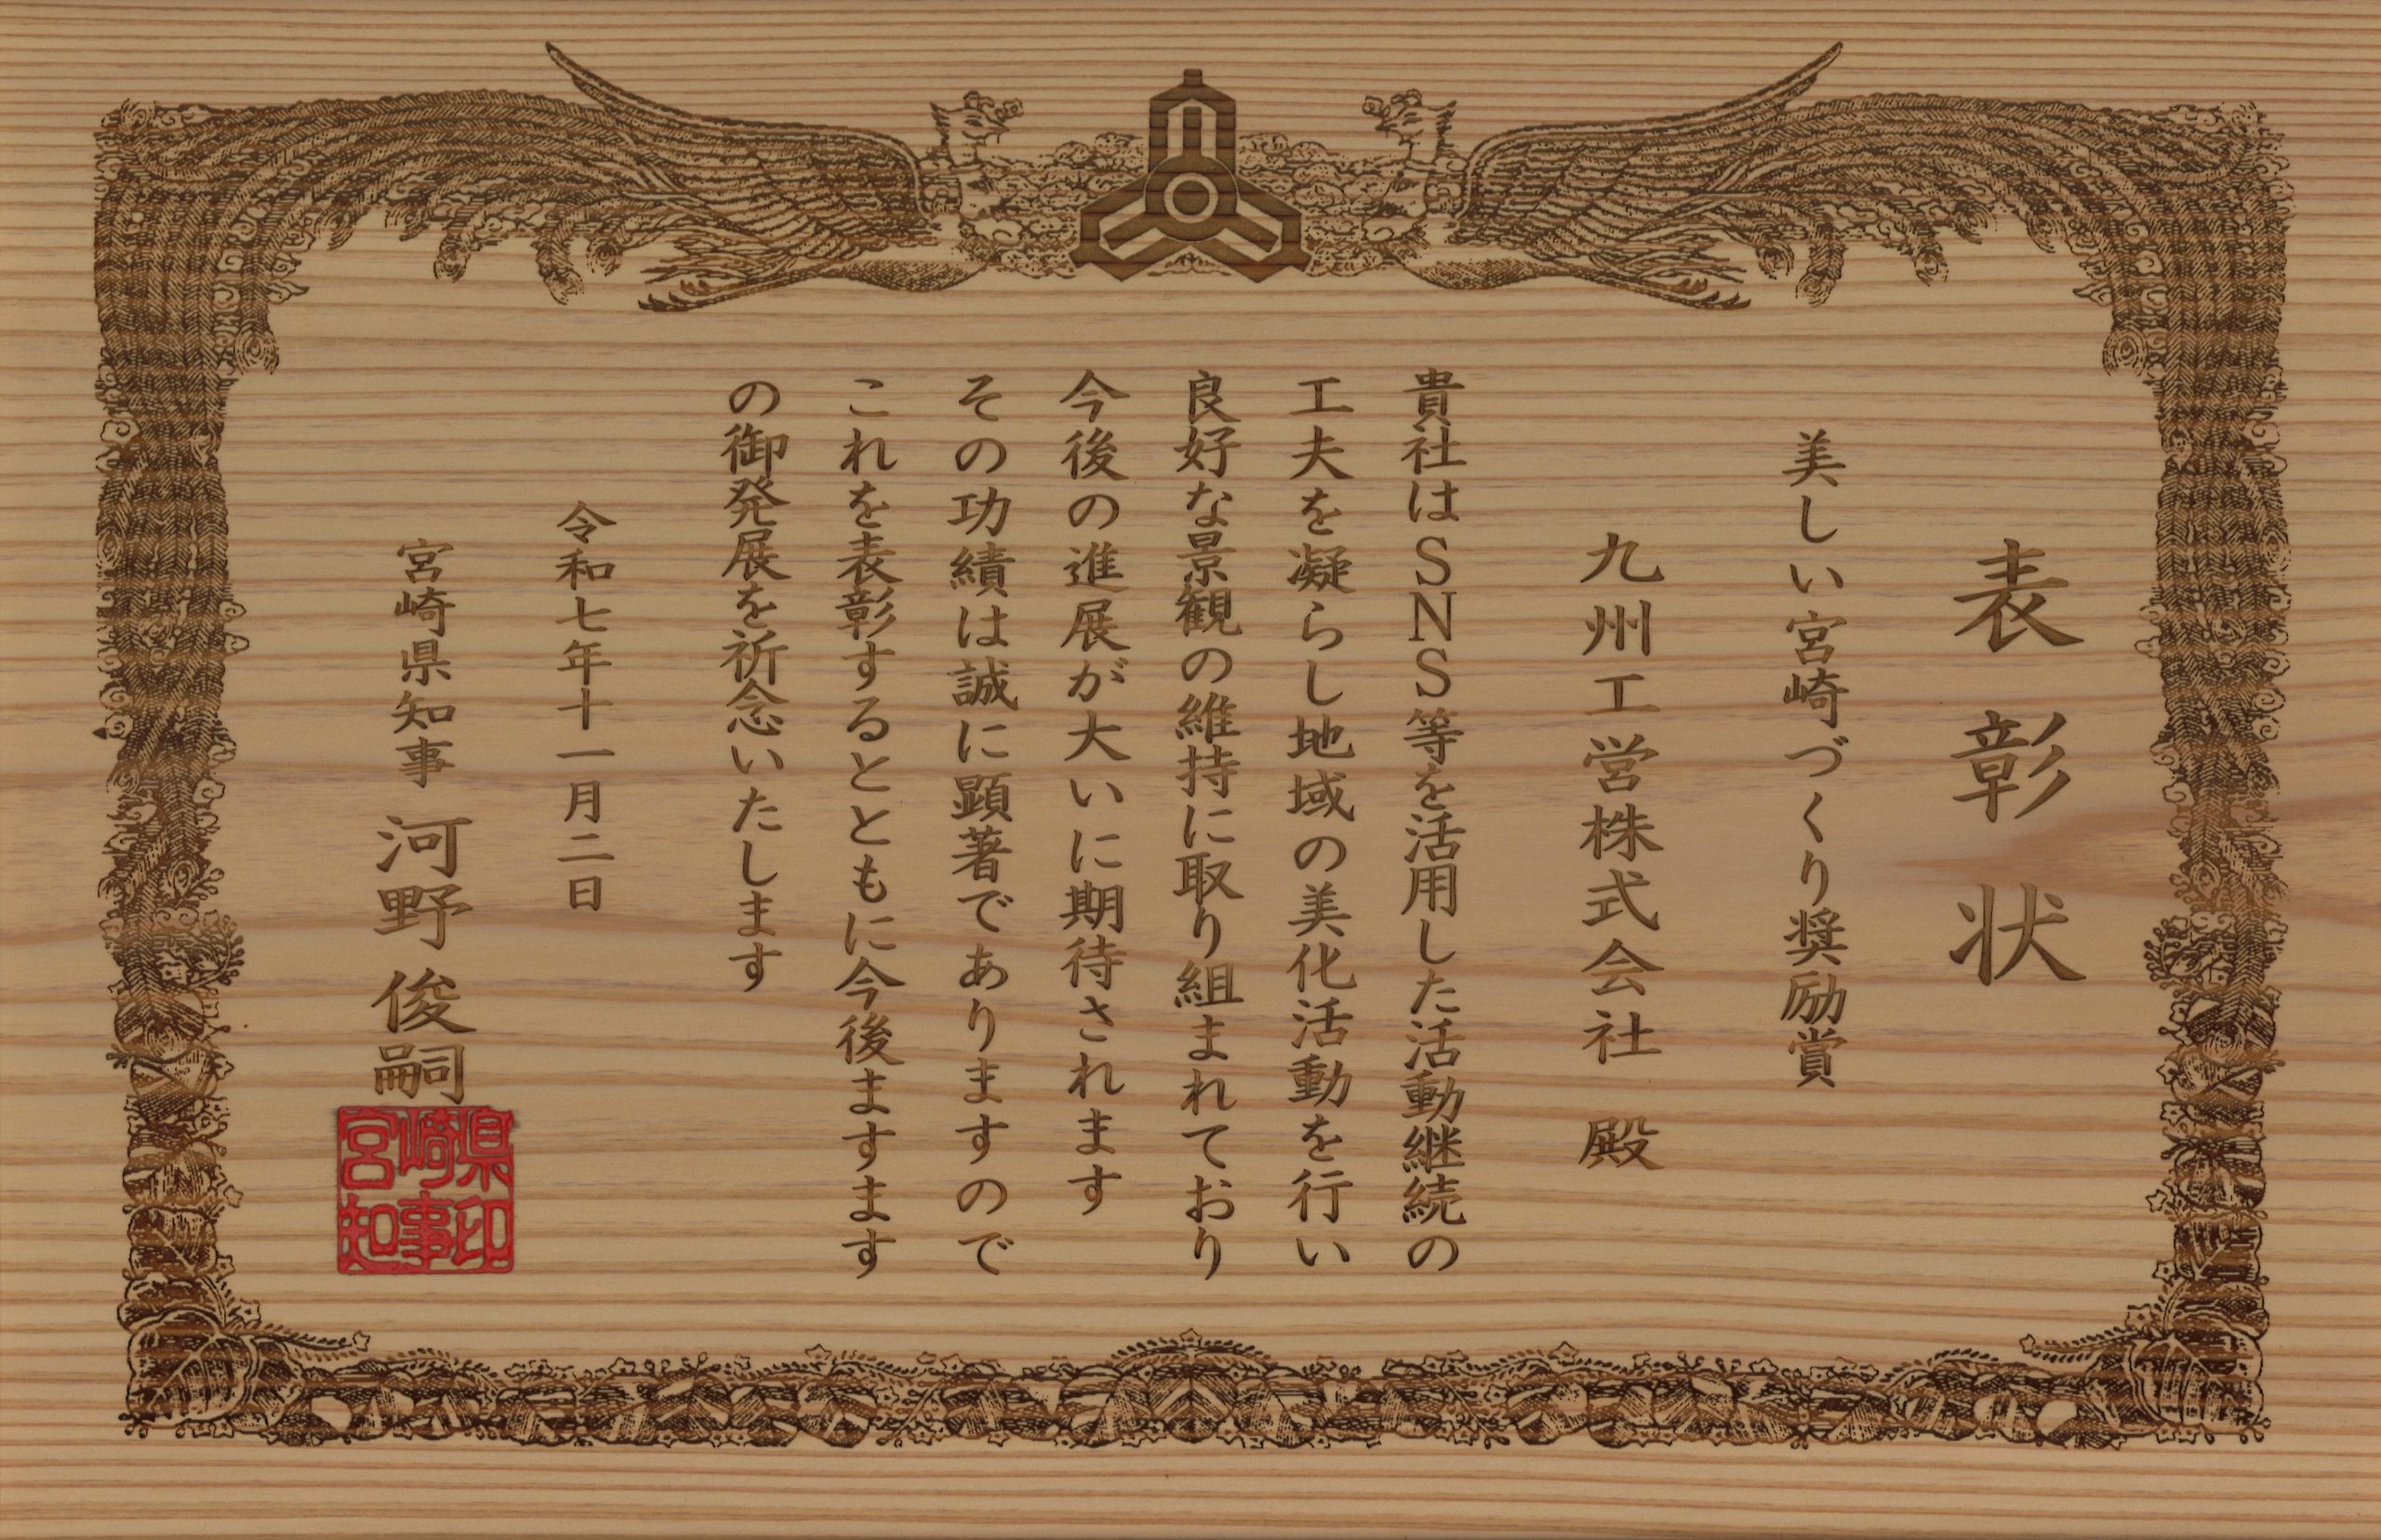 表彰状
美しい宮崎づくり奨励賞
九州工営株式会社 殿
貴社はSNS等を活用した活動継続の
工夫を凝らし地域の美化活動を行い
良好な景観の維持に取り組まれており
今後の進展が大いに期待されます
その功績は誠に顕著でありますので
これを表彰するとともに今後ますます
の御発展を祈念いたします
令和七年十一月二日
宮崎県知事 河野 俊嗣
宮崎県知事印